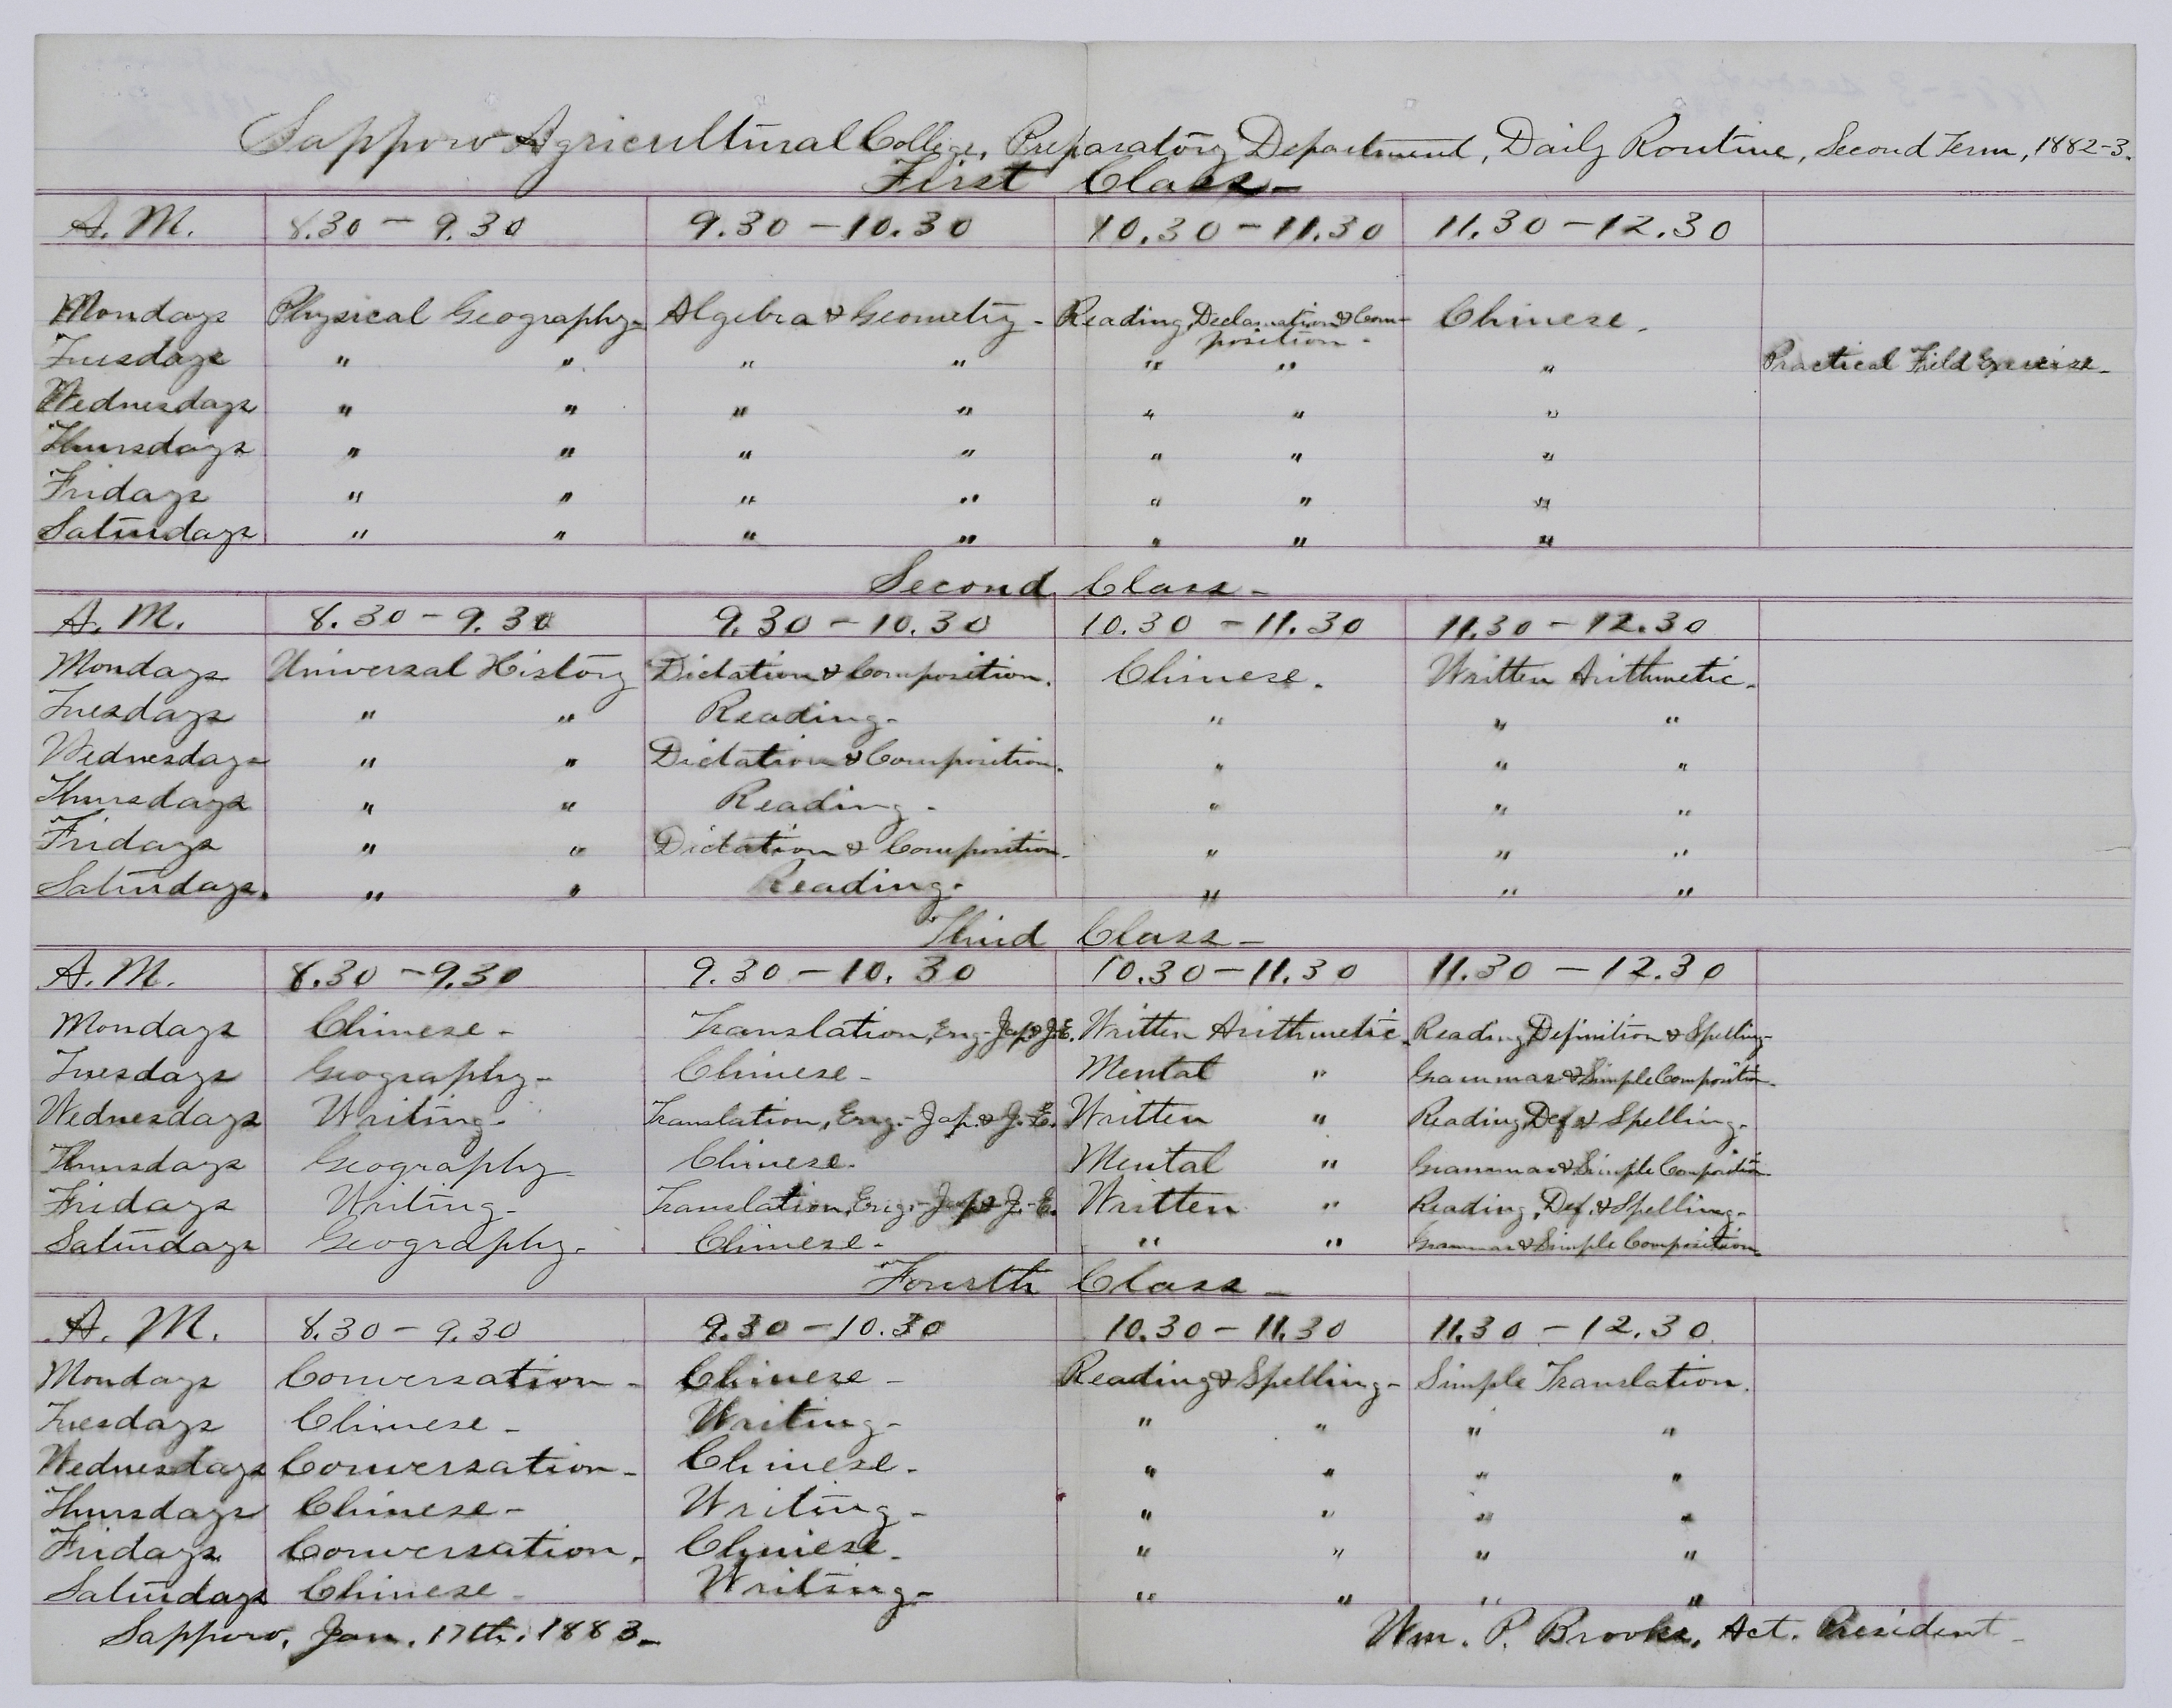 Sapporo Agricultural College, Preparatory Department, Daily Routine, Second Term, 1882-3.
First Class-
A. M. 8.30 - 9.30 9.30 - 10.30 10.30 - 11.30 11.30 - 12.30
Mondays Physical Geography- Algebra & Geometry - Reading, Declamation & Com-position - Chinese.
Tuesdays " " " " " " " Practical Field Exercise-
Wednesdays " " " " " " "
Thursdays " " " " " " "
Fridays " " " " " " "
Saturdays " " " " " " "
Second Class-
A. M. 8.30 - 9.30 9.30 - 10.30 10.30 - 11.30 11.30 - 12.30
Mondays Universal History Dictation & Composition. Chinese. Written Arithmetic-
Tuesdays " " Reading- " " "
Wednesdays " " Dictation & Composition. " " "
Thursdays " " Reading- " " "
Fridays " " Dictation & Composition- " " "
Saturdays. " " Reading- " " "
Third Class-
A. M. 8.30 - 9.30 9.30 - 10.30 10.30 - 11.30 11.30 - 12.30
Mondays Chinese- Translation, Eng-Jap & J.E. Written Arithmetic. Reading, Definition & Spelling-
Tuesdays Geography- Chinese- Mental " Grammar & Simple Composition-
Wednesdays Writing- Translation, Eng.-Jap. & J.-E. Written " Reading, Def & Spelling-
Thursdays Geography- Chinese- Mental " Grammar & Simple Composition-
Fridays Writing- Translation, Eng.-Jap & J.-E. Written " Reading, Def. & Spelling-
Saturdays Geography- Chinese- " " Grammar & Simple Composition-
Fourth Class-
A. M. 8.30 - 9.30 9.30 - 10.30 10.30 - 11.30 11.30 - 12.30
Mondays Conversation- Chinese- Reading & Spelling- Simple Translation.
Tuesdays Chinese- Writing- " " " "
Wednesdays Conversation- Chinese- " " " "
Thursdays Chinese- Writing- " " " "
Fridays Conversation. Chinese- " " " "
Saturdays Chinese- Writing- " " " "
Sapporo, Jan. 17th. 1883- Wm. P. Brooks, Act. President-